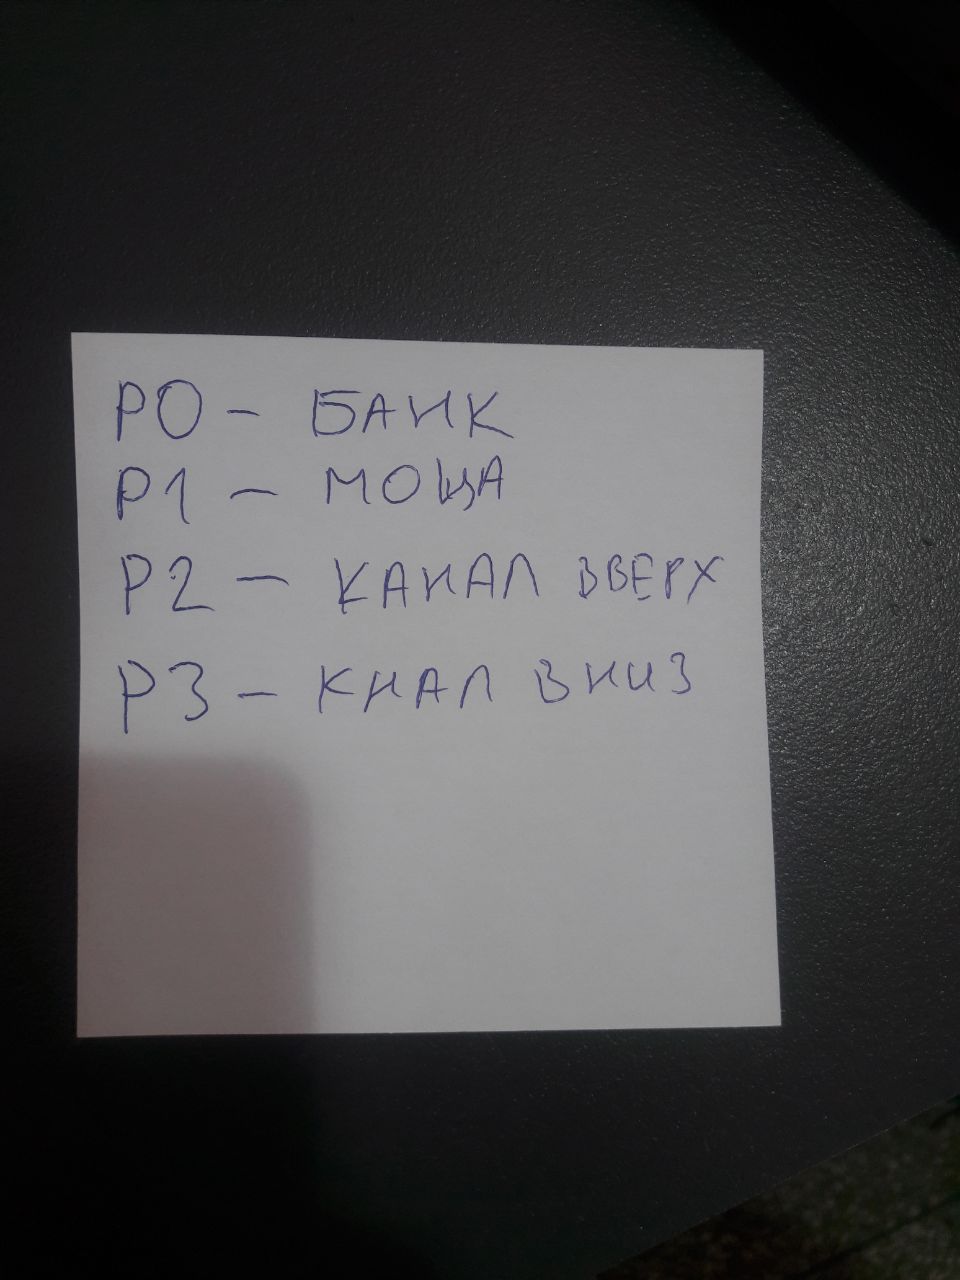 P0 - БАНК
P1 - МОЩА
P2 - КАНАЛ ВВЕРХ
P3 - КНАЛ ВНИЗ